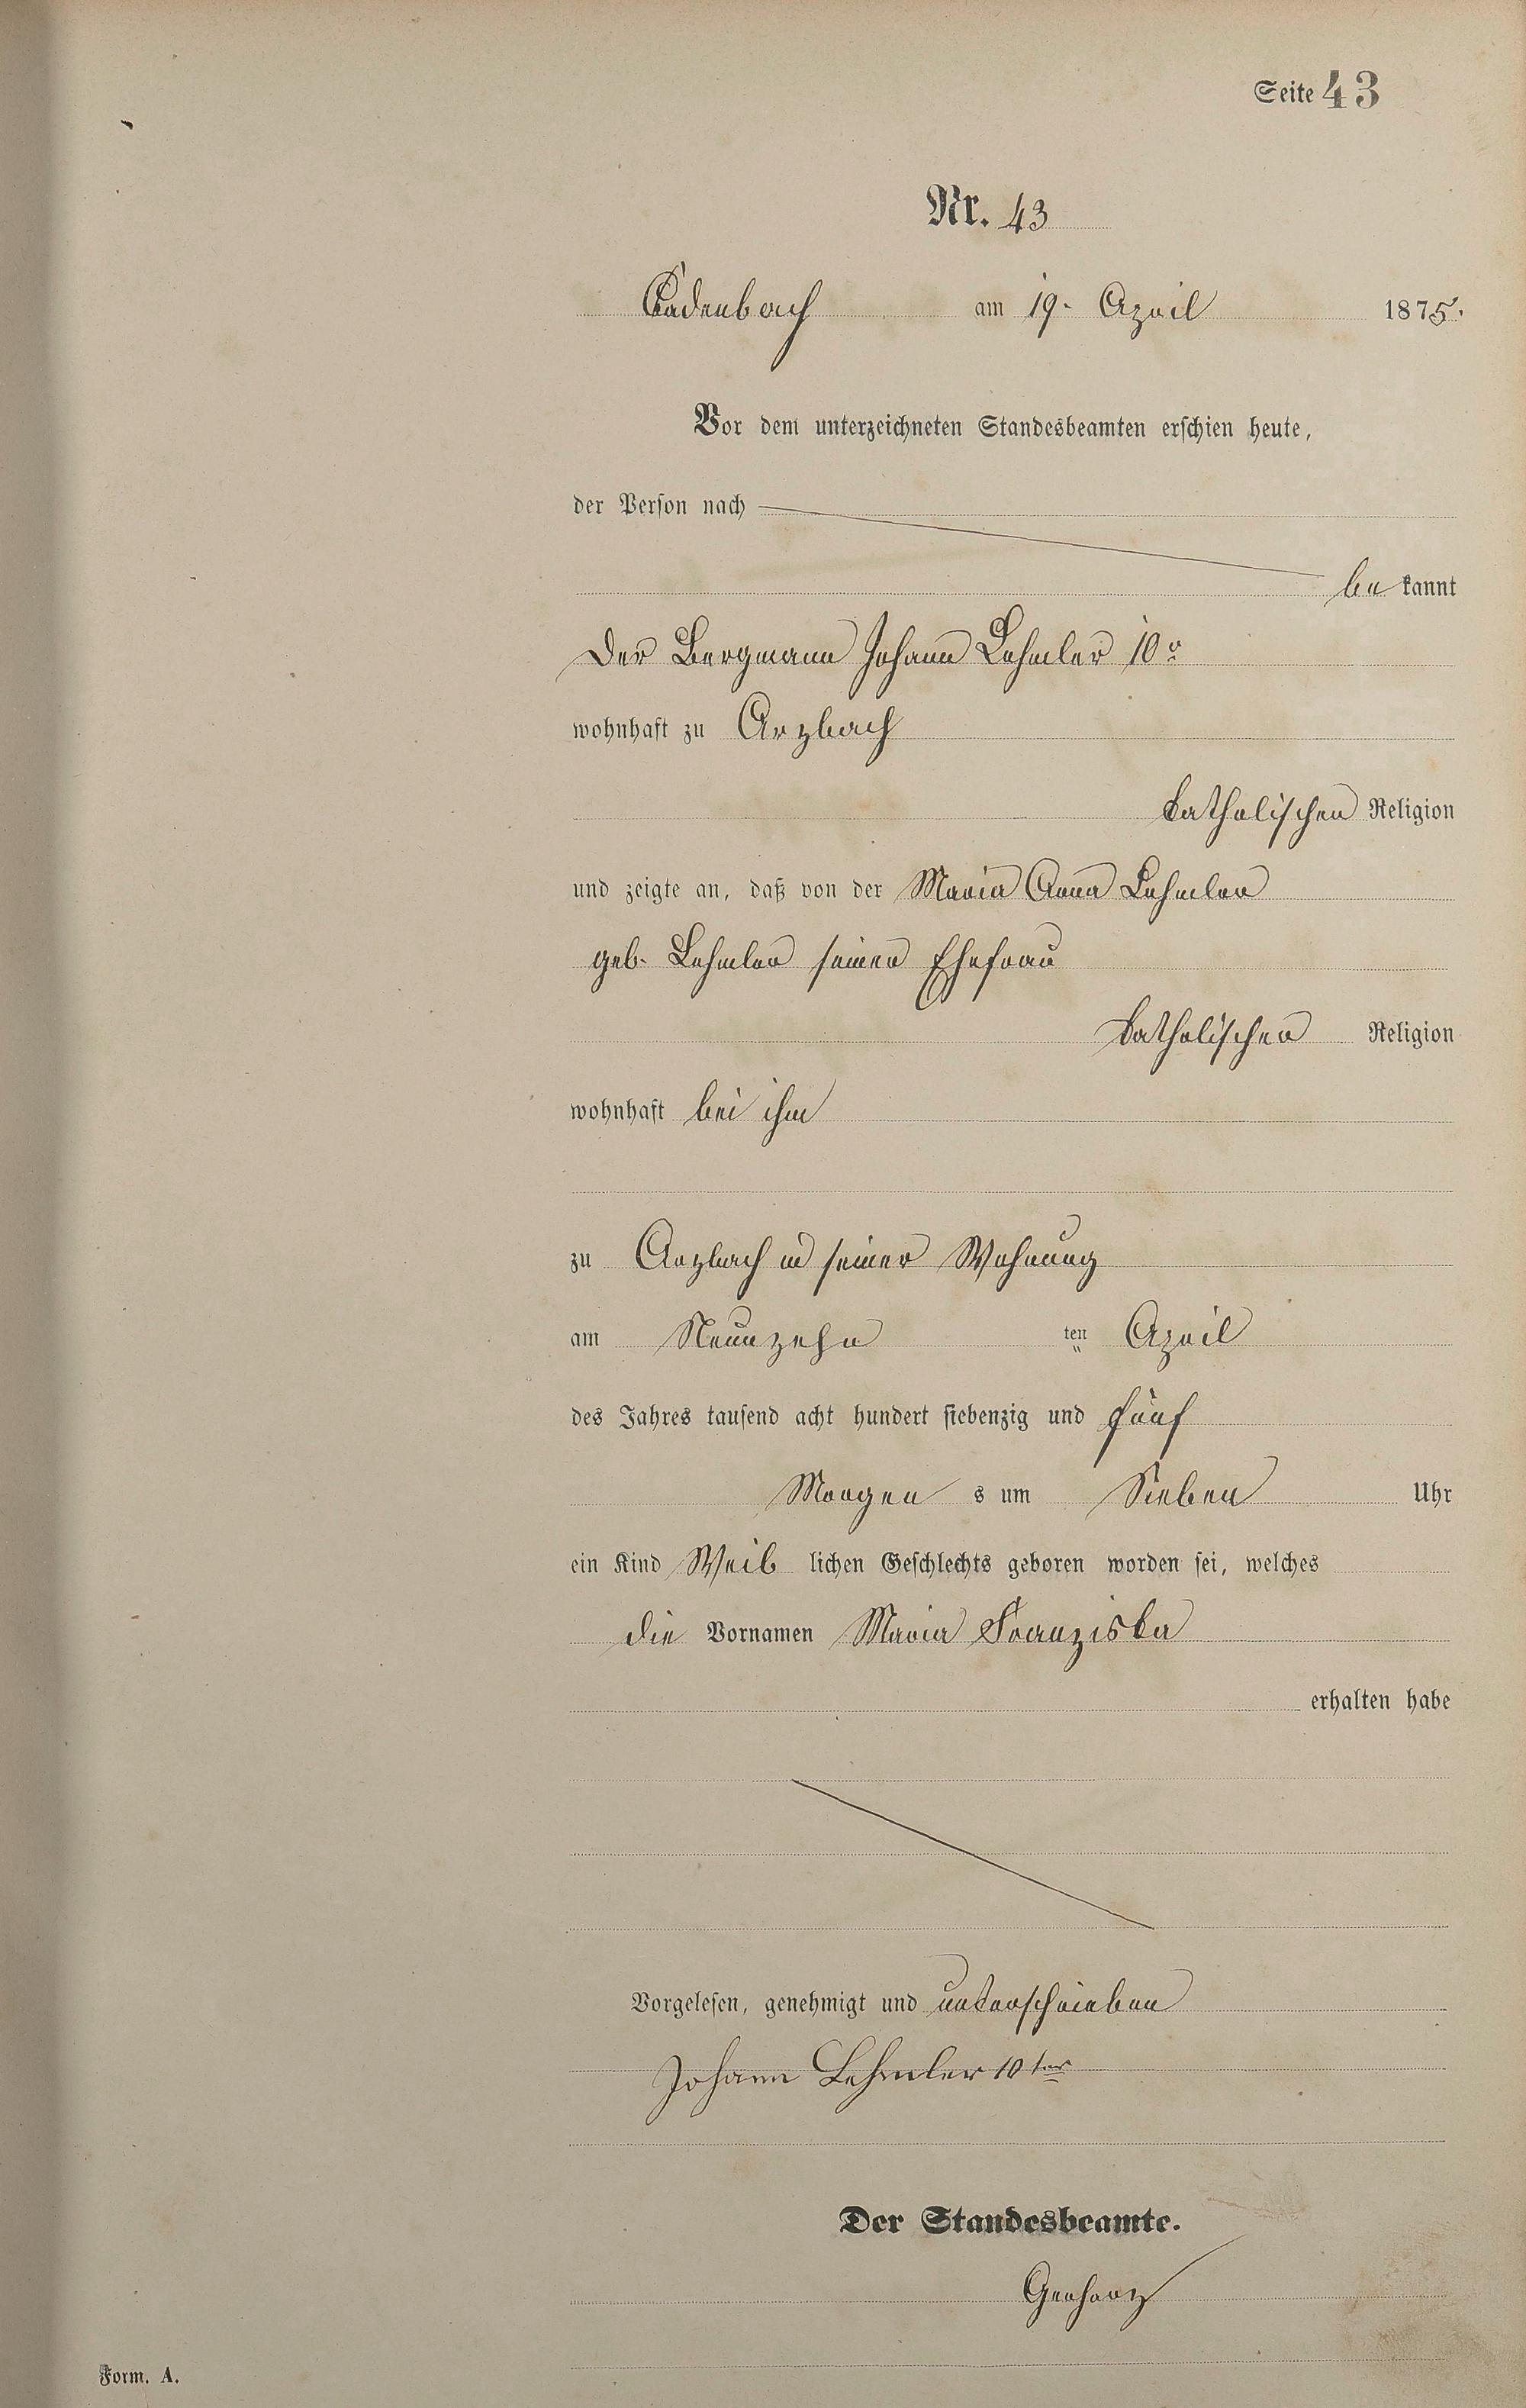 Seite 43
Nr. 43
Cadenbach am 19. April 1875.
Vor dem unterzeichneten Standesbeamten erschien heute,
der Person nach
be kannt
der Bergmann Johann Lehmler 10r
wohnhaft zu Arzbach
katholischer Religion
und zeigte an, daß von der Maria Anna Lehmler
geb. Lehmler seiner Ehefrau
katholischer Religion
wohnhaft bei ihm
zu Arzbach in seiner Wohnung
am Neunzehn ten April
des Jahres tausend acht hundert siebenzig und fünf
Morgen s um Sieben Uhr
ein Kind Weib lichen Geschlechts geboren worden sei, welches
die Vornamen Maria Franziska
erhalten habe
Vorgelesen, genehmigt und unterschrieben
Johann Lehmler 10ter
Der Standesbeamte.
Gerharz
Form. A.